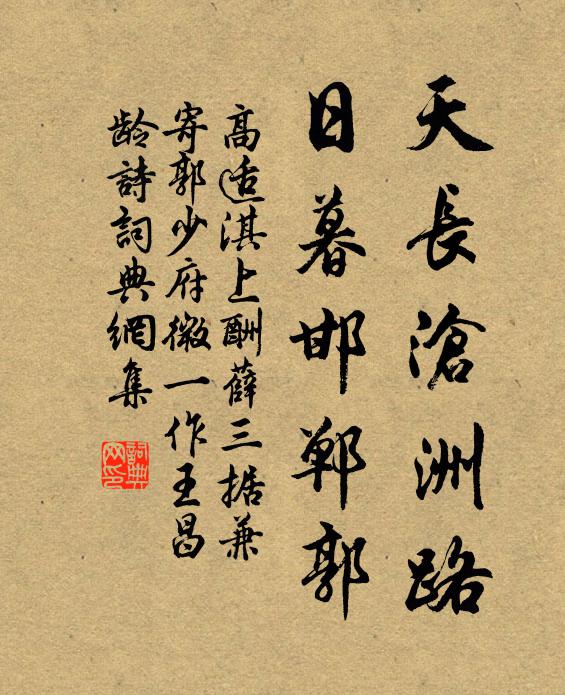 天長滄洲路
日暮邯鄲郭
高适淇上酬薛三据兼
寄郭少府微一作王昌
龄詩詞典網集
詞典网印